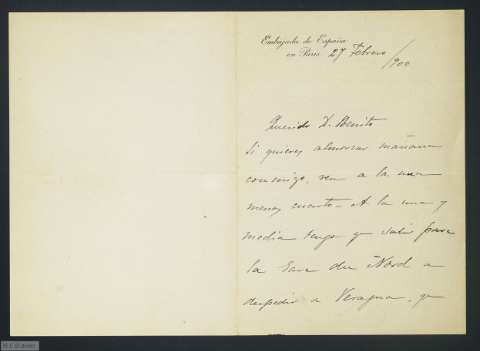 Embajada de España
en Paris 27 Febrero /900
Querido D. Benito
Si quieres almorzar mañana
conmigo, ven a la una
menos cuarto - A la una y
media tengo q salir para
la Gare du Nord a
despedir a Veragua, q